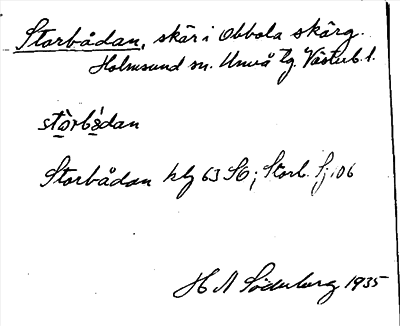 Storbådan, skär i Obbola skärg.
Holmsund sn. Umeå tg. Västerb. l.
stòrbǻdan
Storbådan hlg 63 SO; Storb. Sj. 06
H A Söderberg 1935